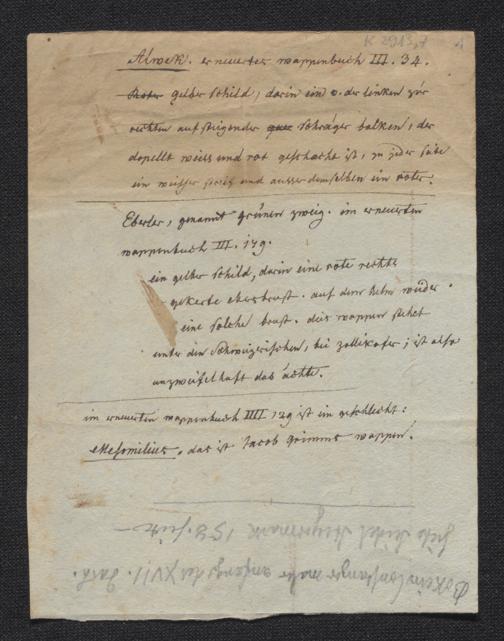 K 2913,7
Alwek. erneuertes wappenbuch III. 34.
gelber schild, darin ein v. der linken zur
rechten aufsteigender schräger balken, der
dopellt weiss und rot geschacht ist, zu jeder seite
ein weisser streif und ausser demselben ein roter.
Eberler, genannt grünen zweig. im erneuerten
wappenbuch III. 179.
ein gelber schild, darin eine rote rechts
gekerte ebersbrust. auf dem helm wieder
eine solche brust. dies wappen stehet
unter den schweizerischen, bei zollikofer; ist also
unzweifelhaft das ächte.
im erneuerten wappenbuch IIII 129 ist ein geschlecht:
das ist Jacob Grimms wappen.